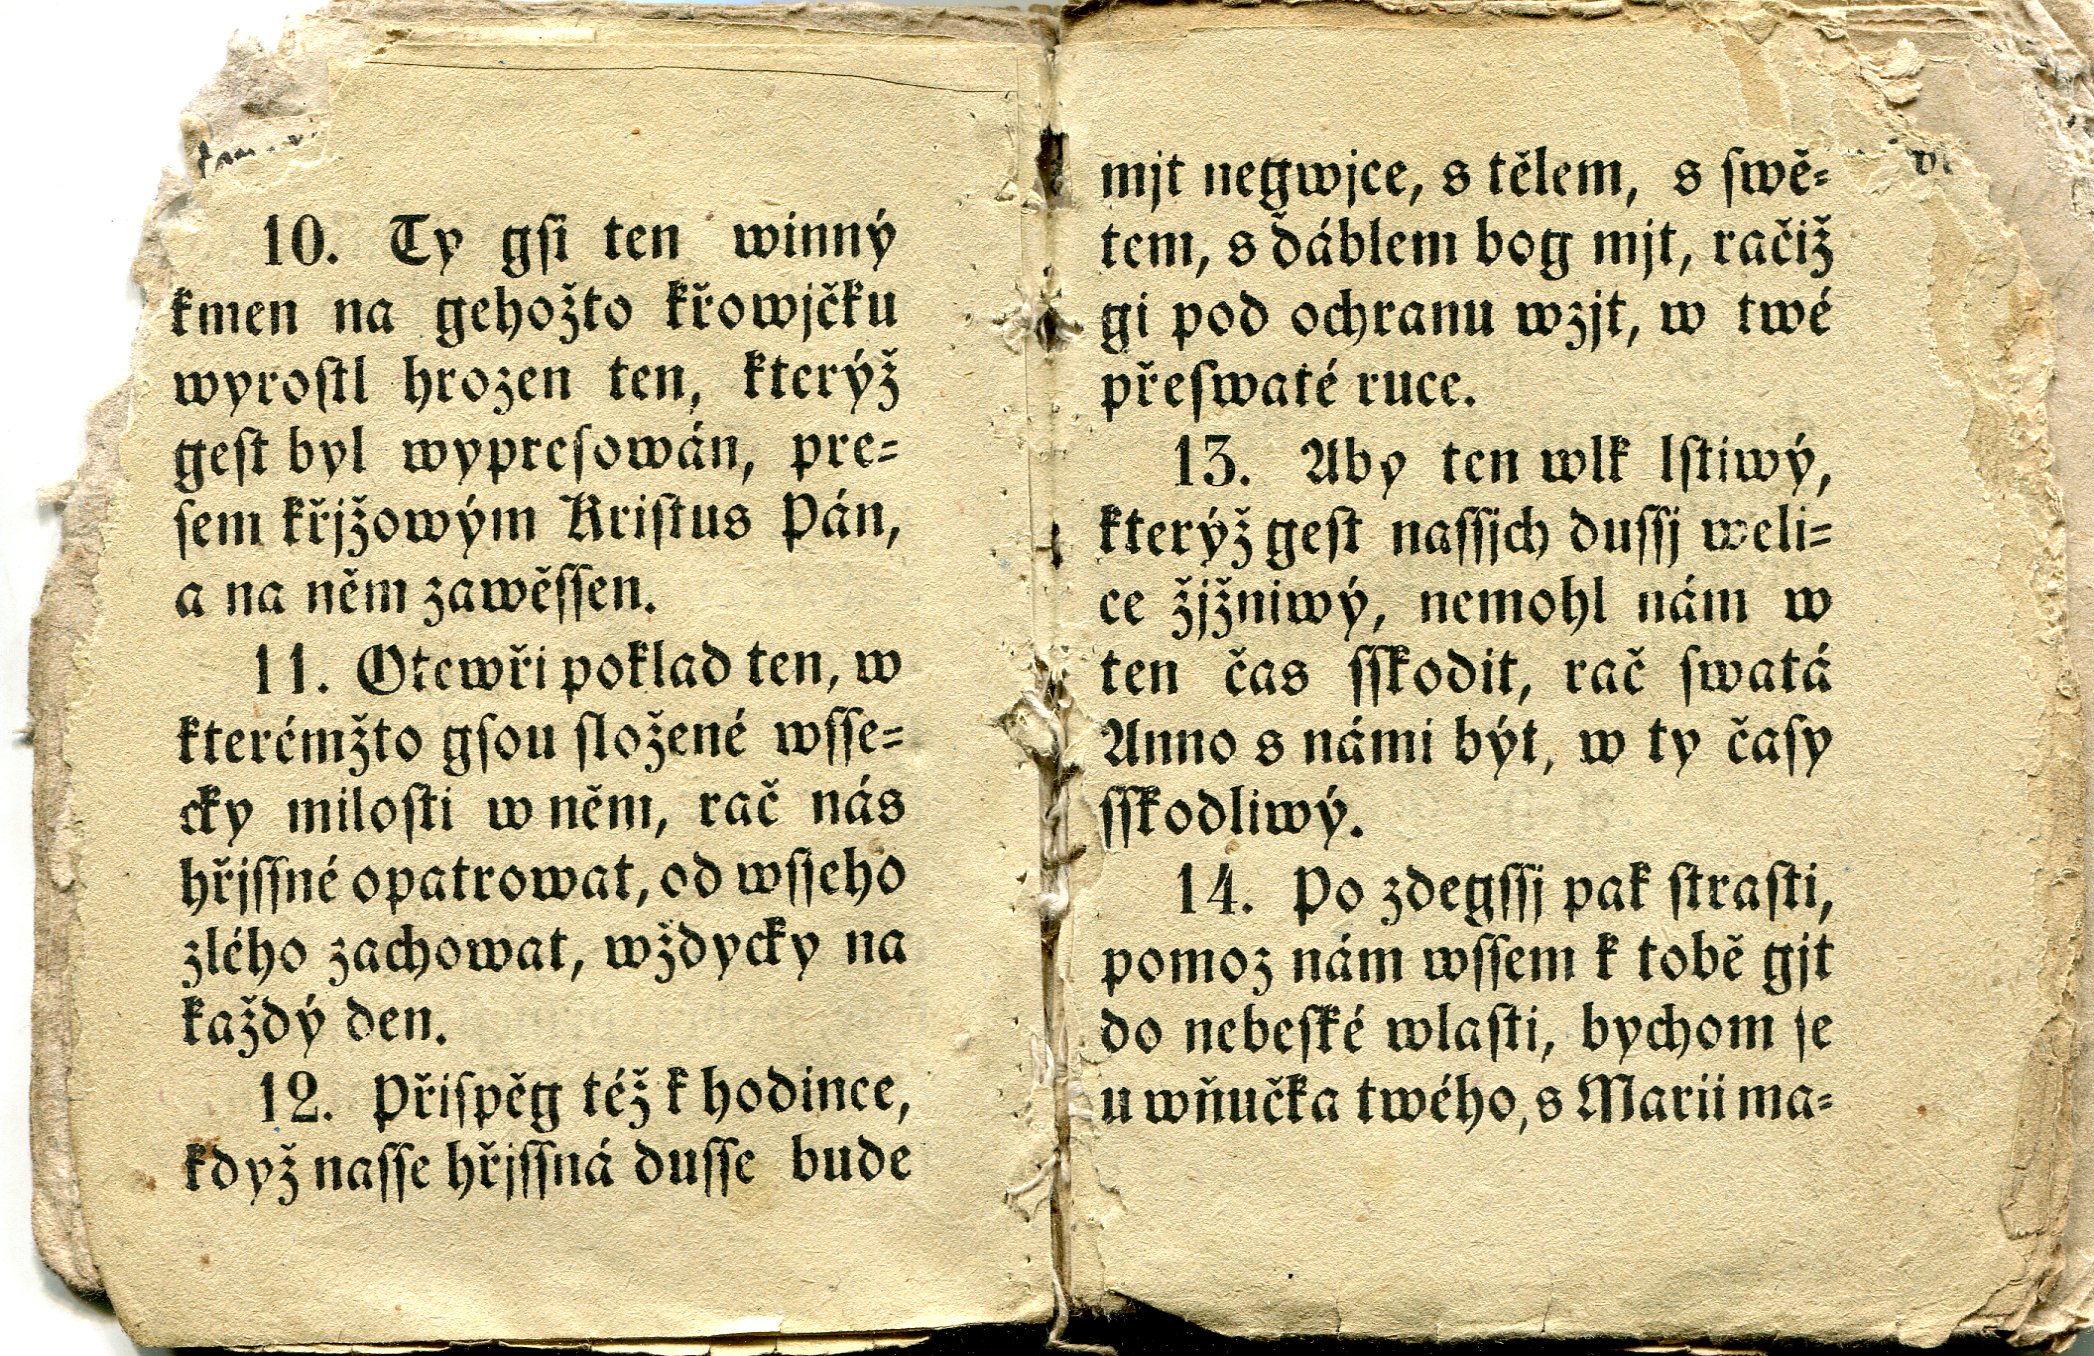 10. Ty gſi ten winný
kmen na gehožto křowjčku
wyroſtl hrozen ten, kterýž
geſt byl wypreſowán, pre=
ſem křjžowým Kriſtus Pán,
a na něm zawěſſen.
11. Otewři poklad ten, w
kterémžto gſou ſložené wſſe=
cky miloſti w něm, rač nás
hřjſſné opatrowat, od wſſeho
zlého zachowat, wždycky na
každý den.
12. Přiſpěg též k hodince,
když naſſe hřjſſná duſſe bude
mjt negwjce, s tělem, s ſwě=
tem, s ďáblem bog mjt, račiž
gi pod ochranu wzjt, w twé
přeſwaté ruce.
13. Aby ten wlk lſtiwý,
kterýž geſt naſſjch duſſj weli=
ce žjžniwý, nemohl nám w
ten čas ſſkodit, rač ſwatá
Anno s námi být, w ty čaſy
ſſkodliwý.
14. Po zdegſſj pak ſtraſti,
pomoz nám wſſem k tobě gjt
do nebeſké wlaſti, bychom ſe
u wňučka twého, s Marii ma=